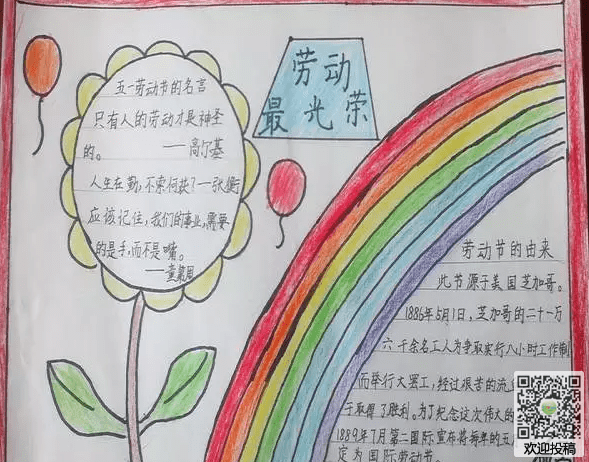 五一劳动节的名言
只有人的劳动才是神圣
的。——高尔基
人生在勤,不索何获?一张衡
应该记住,我们的事业,需要
的是手,而不是嘴。
——童第周
劳动
最光荣
劳动节的由来
此节源于美国芝加哥。
1886年5月1日,芝加哥的二十一万
六千余名工人为争取实行八小时工作制
而举行大罢工,经过艰苦的流
于取得了胜利。为了纪念这次伟大的
1889年7月第二国际宣布将每年的五
定为国际劳动节。
欢迎投稿